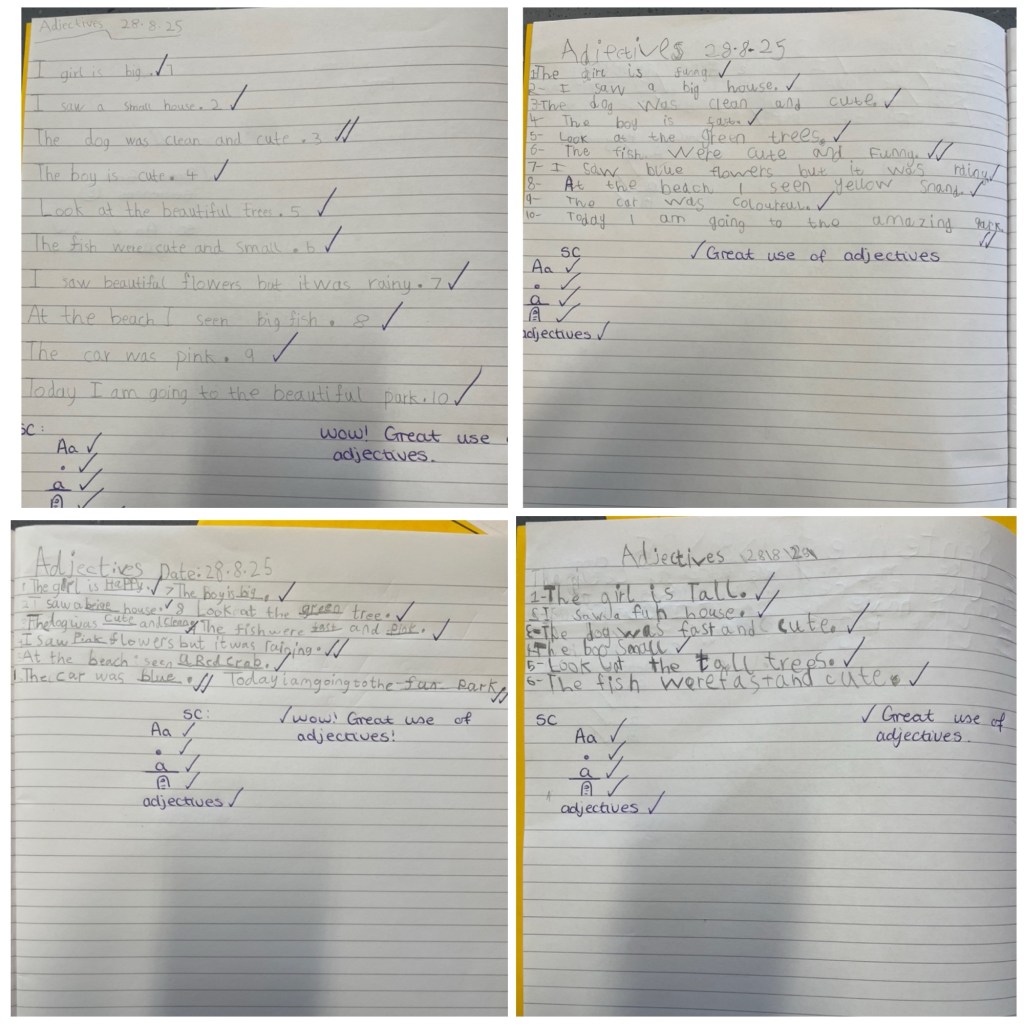 Adjectives 28.8.25
I girl is big. 1
I saw a small house. 2
The dog was clean and cute. 3
The boy is cute. 4
Look at the beautiful trees. 5
The fish were cute and small. 6
I saw beautiful flowers but it was rainy. 7
At the beach I seen big fish. 8
The car was pink. 9
Today I am going to the beautiful park. 10
SC:
Aa
.
a
wow! Great use
adjectives.
28.8.25
1The girl is
2- I saw a big house.
3-The dog was clean and cute.
4- The boy is fast.
5- Look at the green trees.
6- The fish were cute and Funny.
7- I saw blue flowers but it was rainy
8- At the beach I seen yellow
9- The car was
10- Today I am going to the amazing
SC
Aa
.
a
adjectives
Great use of adjectives
Adjectives Date: 28.8.25
The girl is Happy. The boy is big.
I saw a beige house. 8 Look at the green tree.
The dog was cute and The fish were fast and pink.
I saw Pink flowers but it was raining.
At the beach seen a Red crab.
The car was blue. Today i am going to the fun Park
SC:
Aa
.
a
adjectives
wow! Great use of
adjectives!
Adjectives
1-The girl is Tall.
saw a fun house.
The dog was fast and cute.
The small
5-Look the tall trees.
6-The fish were fast and cute.
SC
Aa
.
a
adjectives
Great use of
adjectives.